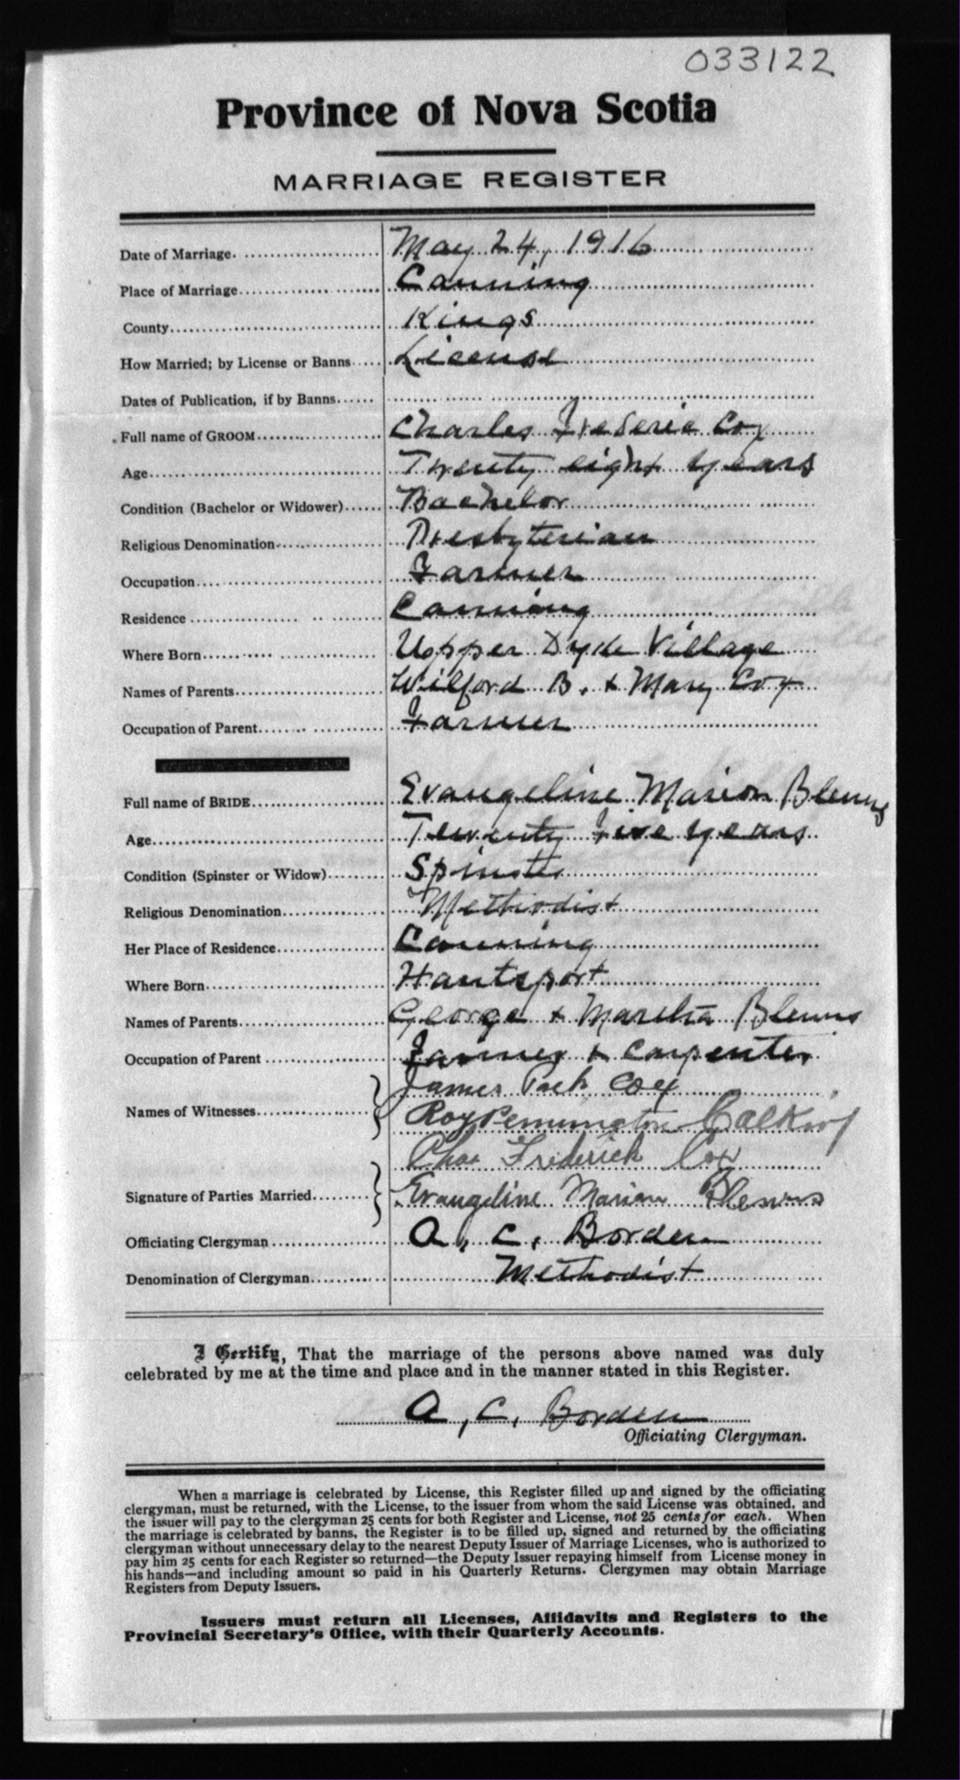 033122
Province of Nova Scotia
MARRIAGE REGISTER
Date of Marriage. May 24, 1916
Place of Marriage Canning
County Kings
How Married; by License or Banns License
Dates of Publication, if by Banns
Full name of GROOM Charles Frederic Cox
Age Twenty eight years
Condition (Bachelor or Widower) Bachelor
Religious Denomination Presbyterian
Occupation Farmer
Residence Canning
Where Born Upper Dyke Village
Names of Parents Wilford B. & Mary Cox
Occupation of Parent Farmer
Full name of BRIDE Evangeline Marion Blenus
Age Twenty five years
Condition (Spinster or Widow) Spinster
Religious Denomination Methodist
Her Place of Residence Canning
Where Born Hantsport
Names of Parents George & Martha Blenus
Occupation of Parent Farmer & Carpenter
James Cox
Names of Witnesses Roy Pennington Calkin
Chas Frederick Cox
Signature of Parties Married Evangeline Marion Blenus
Officiating Clergyman A. C. Borden
Denomination of Clergyman Methodist
I Certify, That the marriage of the persons above named was duly
celebrated by me at the time and place and in the manner stated in this Register.
A, C, Borden
Officiating Clergyman.
When a marriage is celebrated by License, this Register filled up and signed by the officiating
clergyman, must be returned, with the License, to the issuer from whom the said License was obtained, and
the issuer will pay to the clergyman 25 cents for both Register and License, not 25 cents for each. When
the marriage is celebrated by banns, the Register is to be filled up, signed and returned by the officiating
clergyman without unnecessary delay to the nearest Deputy Issuer of Marriage Licenses, who is authorized to
pay him 25 cents for each Register so returned—the Deputy Issuer repaying himself from License money in
his hands—and including amount so paid in his Quarterly Returns. Clergymen may obtain Marriage
Registers from Deputy Issuers.
Issuers must return all Licenses, Affidavits and Registers to the
Provincial Secretary's Office, with their Quarterly Accounts.